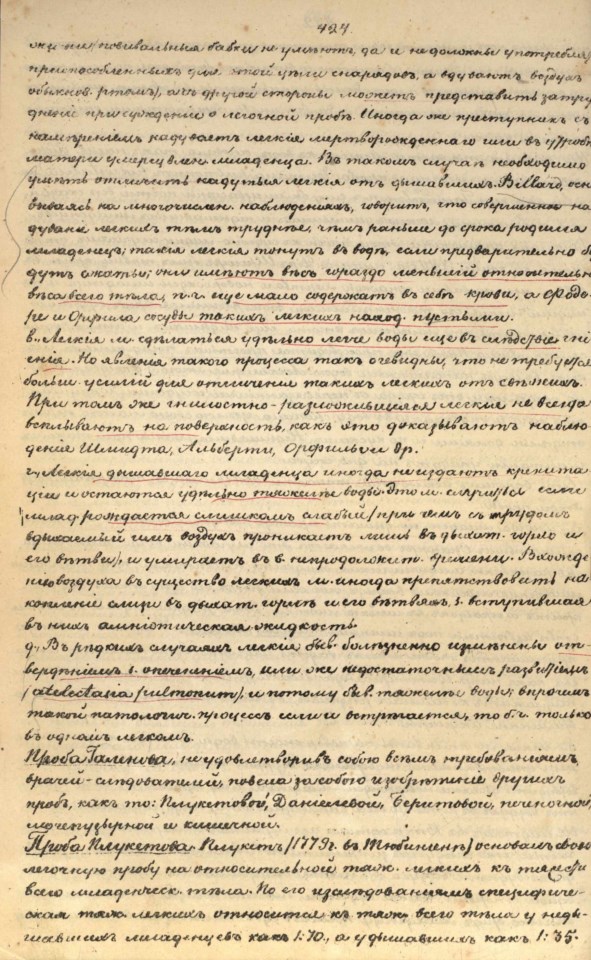 424.
яки ни повивальныя бабки не умѣютъ, да и не должны употребля
приспособленныхъ для этой цѣли снарядовъ, а вдуваютъ воздухъ
обыкнов. ртомъ), а съ другой стороны можетъ представить затру
дненіе при сужденіи о легочной пробѣ. Иногда же преступникъ съ
намѣреніемъ надуваетъ легкія мертворожденнаго или въ утробѣ
матери умерщвлен. младенца. Въ такомъ случаѣ необходимо
умѣть отличить надутыя легкія отъ дышавшихъ. Billard, осн
вываясь на многочислен. наблюденіяхъ, говоритъ, что совершенное на
дуваніе легкихъ тѣмъ труднѣе, чѣмъ раньше до срока родился
младенецъ; такія легкія тонутъ въ водѣ, если предварительно бу
дутъ сжаты; они имѣютъ вѣсъ гораздо меньшій относительно
вѣса всего тѣла, п. ч. еще мало содержатъ въ себѣ крови, а Ор
ре и Орфила сосуды такихъ легкихъ наход. пустыми.
в., Легкія м. сдѣлаться удѣльно легче воды еще въ слѣдствіе гні
енія. Но явленія такого процесса такъ очевидны, что не требуется
больш. усилій для отличенія такихъ легкихъ отъ свѣжихъ.
При томъ же гнилостно-разложившіяся легкія не всегда
всплываютъ на поверхность, какъ это доказываютъ наблю
денія Шмидта, Альберти, Орфилы и др.
г., Легкія дышавшаго младенца иногда не издаютъ крепита
ціи и остаются удѣльно тяжелѣе воды. Это м. случиться если
млад. рождается слишкомъ слабый (при чемъ съ трудомъ
вдыхаемый имъ воздухъ проникаетъ лишь въ дыхат. горло и
его вѣтви), и умираетъ въ в. непродолжит. времени. Вхожде
нію воздуха въ существо легкихъ м. иногда препятствовать на
копленіе слизи въ дыхат. горлѣ и его вѣтвяхъ, s. вступившая
въ нихъ амніотическая жидкость.
д., Въ рѣдкихъ случаяхъ легкія быв. болѣзненно измѣнены от
вердѣніемъ s. опеченѣніемъ, или же недостаточнымъ развитіемъ
(atelectasia pulmonum), и потому быв. тяжелѣе воды; впрочемъ
такой патологич. процессъ если и встрѣчается, то б. ч. только
въ одномъ легкомъ.
Проба Галенова, не удовлетворивъ собою всѣмъ требованіямъ
врачей-слѣдователей, повела за собою изобрѣтеніе другихъ
пробъ, какъ то: Плукетовой, Даніелевой, Бернтовой, печеночной,
мочепузырной и кишечной.
Проба Плукетова. Плукетъ (1779 г. въ Тюбингенѣ) основалъ свою
легочную пробу на относительной тяж. легкихъ къ тяжести
всего младенческ. тѣла. По его изслѣдованіямъ специфиче-
ская тяж. легкихъ относится къ тяж. всего тѣла у неды-
шавшихъ младенцевъ какъ 1:70, а у дышавшихъ какъ 1:35.